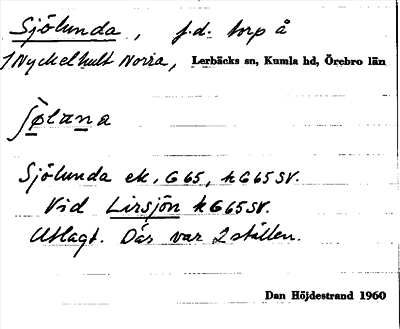 Sjölunda, f.d. torp å
Nyckelhult Norra, Lerbäcks sn, Kumla hd, Örebro län
Sjölunda ek, G 65, h G 65 SV.
Vid Lirsjön k G 65 SV.
Utlagt. Där var 2 ställen.
Dan Höjdestrand 1960